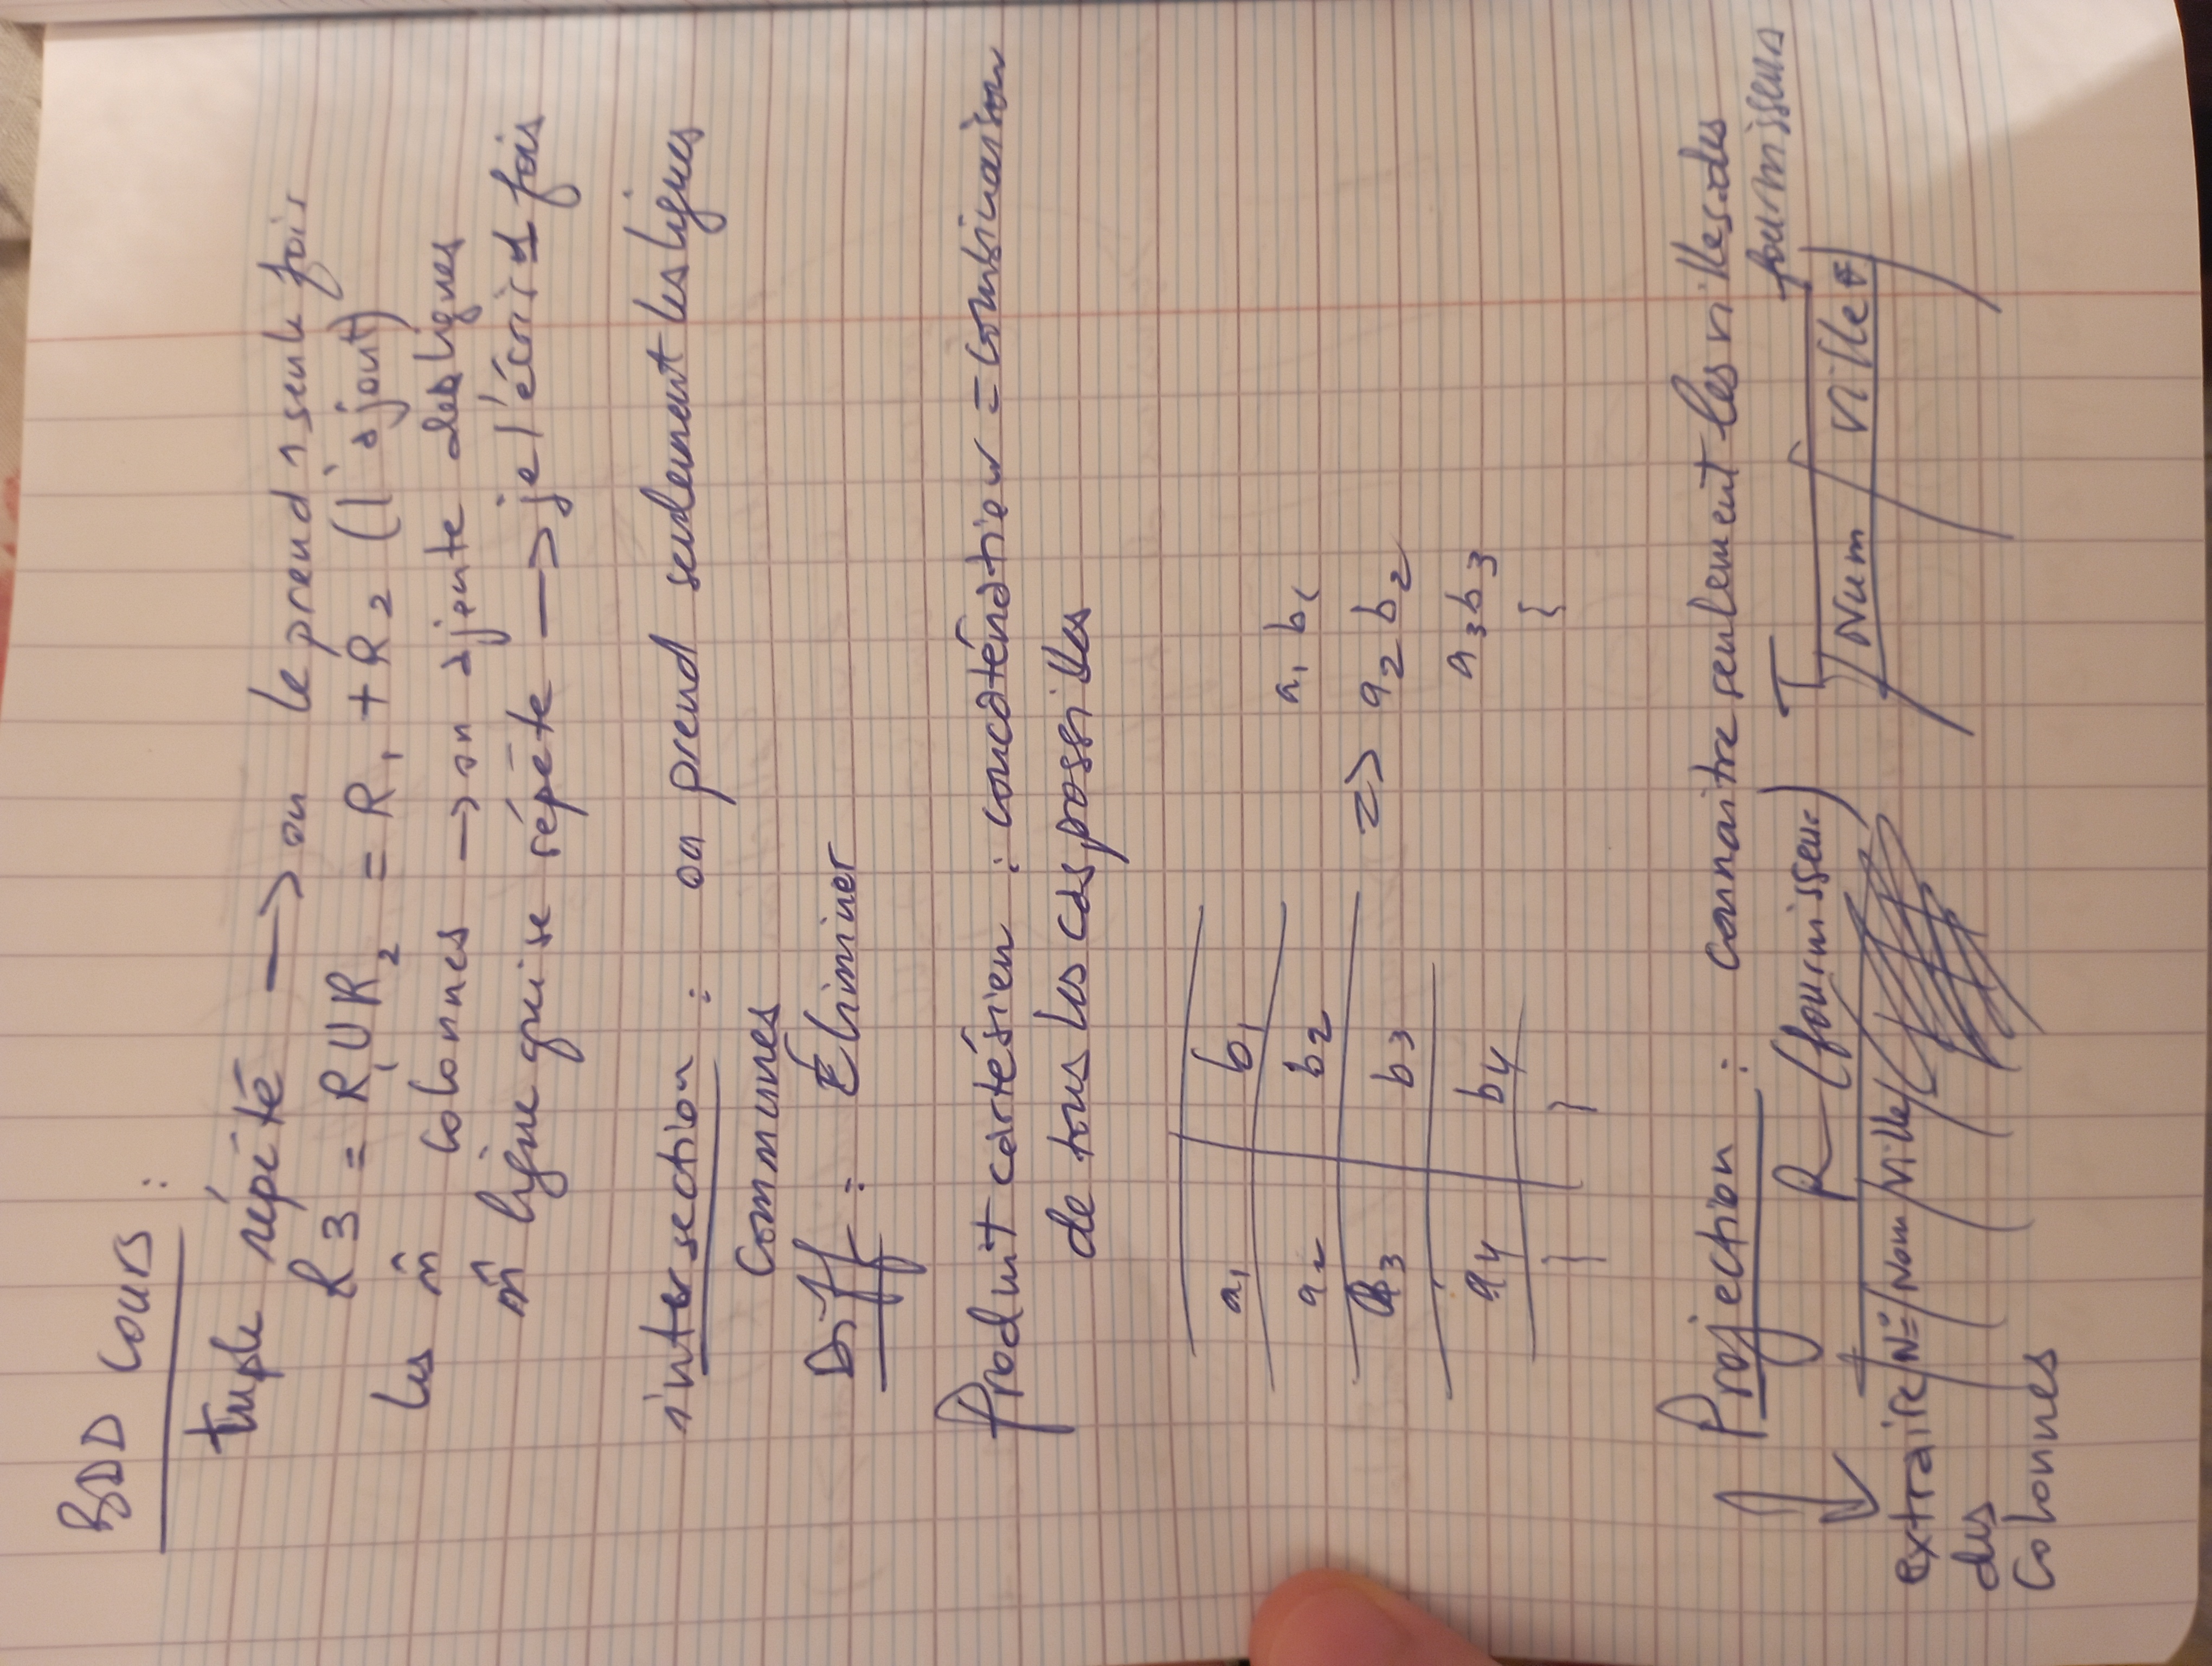 BDD Cours :
tuple répété → on le prend 1 seule fois
R3 = R1 U R2 = R1 + R2 (l'ajout)
les m̂ colonnes → on ajoute des lignes
m̂ ligne qui se répète → je l'écris 1 fois
intersection : on prend seulement les lignes
Communes
Diff : Eliminer
Produit cartésien : concaténation = combinaison
de tous les cas possibles
a1 b1
a2 b2
a3 b3
a4 b4
=>
a1 b1
a2 b2
a3 b3
Projection : connaitre seulement les villes des
fournisseurs
R (fournisseur) T
extraire
des
Colonnes
N° Nom Ville
Num Ville F